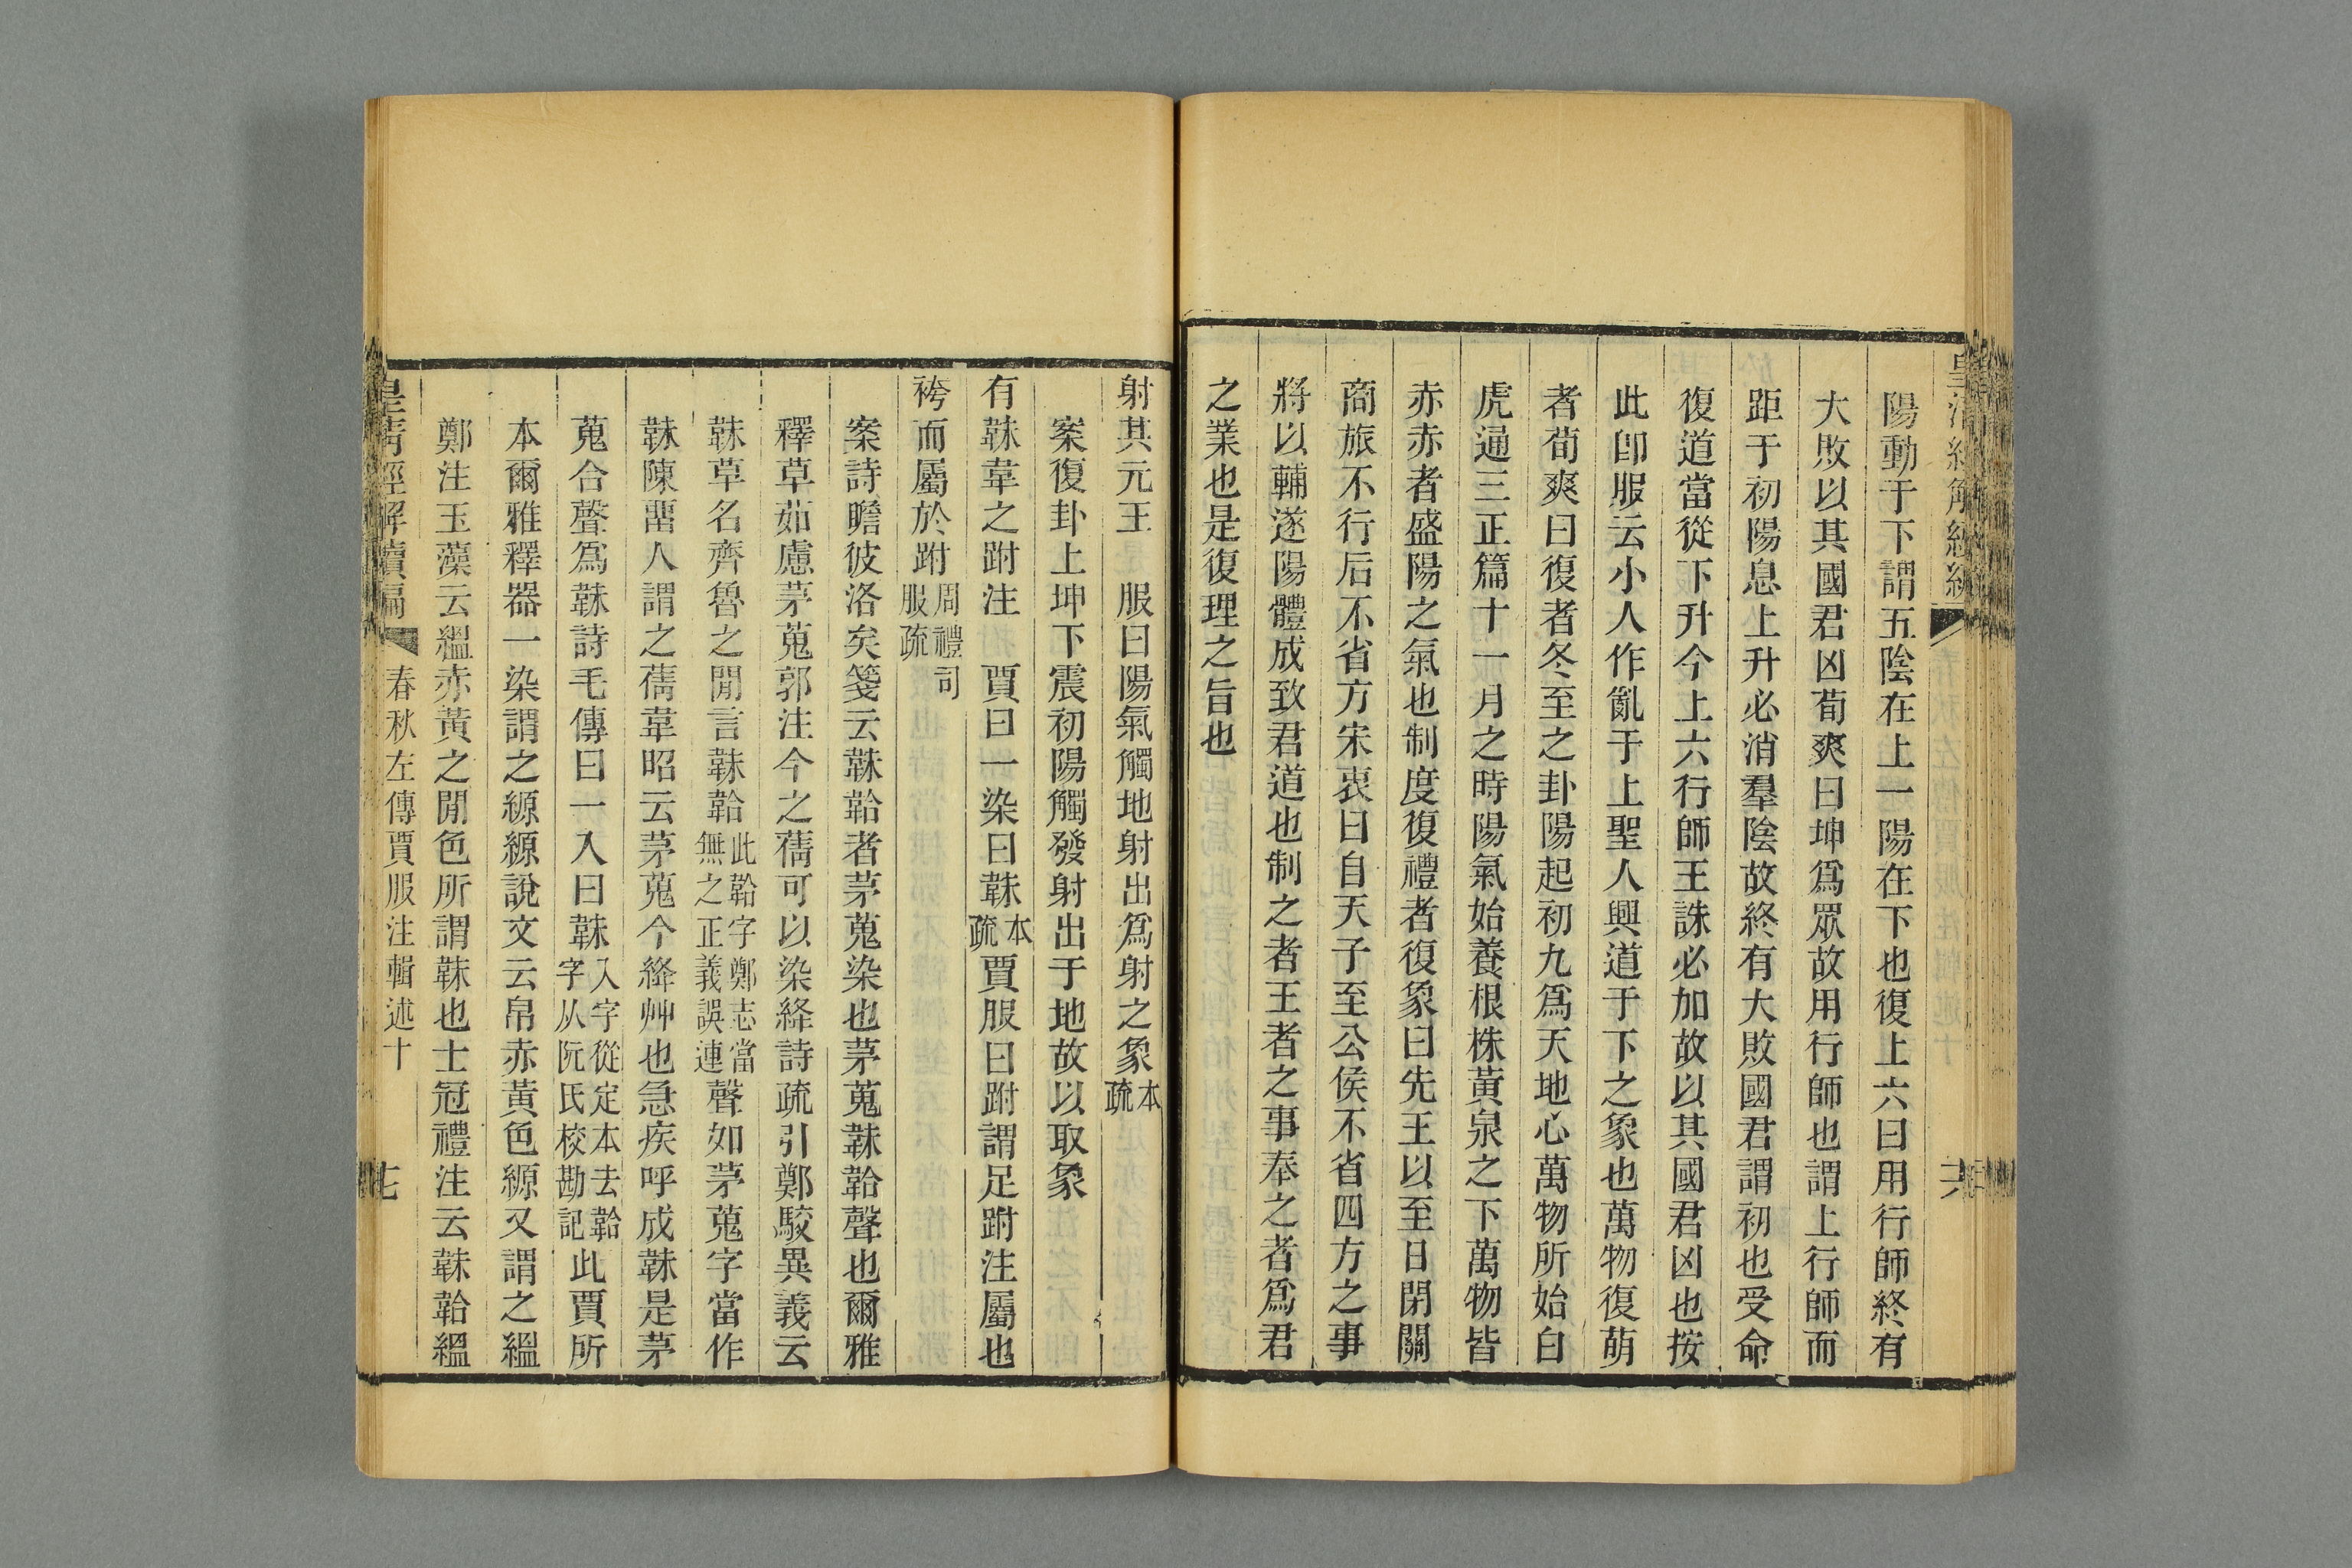 陽動于下謂五陰在上一陽在下也復上六曰用行師終有
大敗以其國君凶荀爽曰坤爲眾故用行師也謂上行師而
距于初陽息上升必消羣陰故終有大敗國君謂初也受命
復道當從下升今上六行師王誅必加故以其國君凶也按
此卽服云小人作亂于上聖人興道于下之象也萬物復萌
者荀爽曰復者冬至之卦陽起初九爲天地心萬物所始白
虎通三正篇十一月之時陽氣始養根株黃泉之下萬物皆
赤赤者盛陽之氣也制度復禮者復象曰先王以至日閉關
商旅不行后不省方宋衷曰自天子至公侯不省四方之事
將以輔遂陽體成致君道也制之者王者之事奉之者爲君
之業也是復理之旨也
射其元王 服曰陽氣觸地射出爲射之象本疏
案復卦上坤下震初陽觸發射出于地故以取象
有韎韋之跗注 賈曰一染曰韎本疏賈服曰跗謂足跗注屬也
袴而屬於跗周禮司服疏
案詩瞻彼洛矣箋云韎韐者茅蒐染也茅蒐韎韐聲也爾雅
釋草茹藘茅蒐郭注今之蒨可以染絳詩疏引鄭駮異義云
韎草名齊魯之閒言韎韐此韐字鄭志當無之正義誤連聲如茅蒐字當作
韎陳畱人謂之蒨韋昭云茅蒐今絳艸也急疾呼成韎是茅
蒐合聲爲韎詩毛傳曰一入曰韎入字從定本去韐字从阮氏校勘記此賈所
本爾雅釋器一染謂之縓縓說文云帛赤黃色縓又謂之縕
鄭注玉藻云縕赤黃之閒色所謂韎也士冠禮注云韎韐縕
皇清經解續編
春秋左傳賈服注輯述十
七